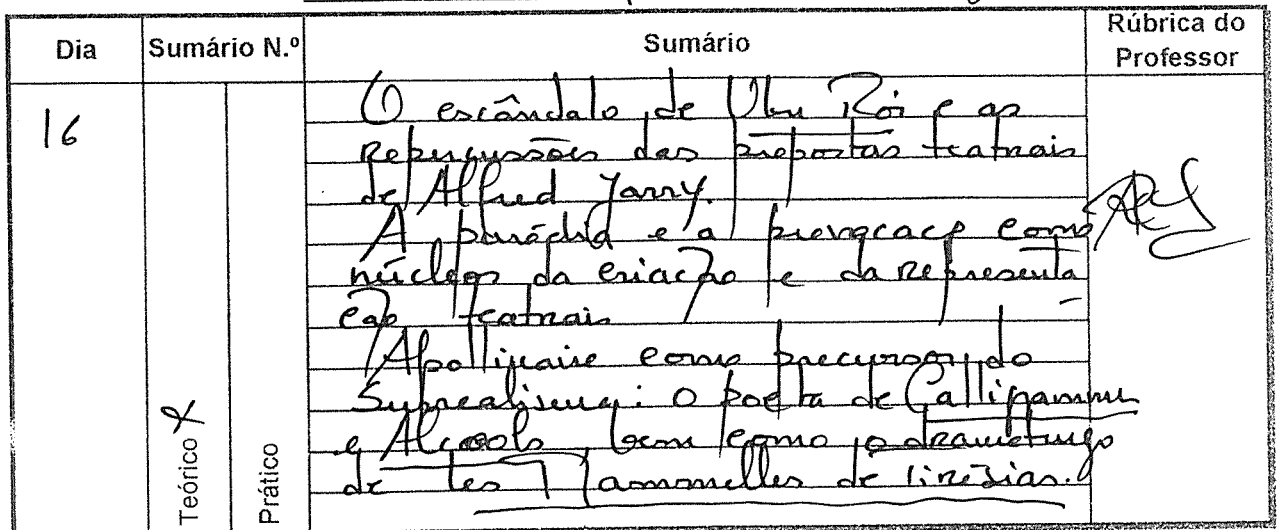 Dia Sumário N.º Sumário Rúbrica do Professor
16
Teórico X
Prático
O escândalo de Ubu Roi e as
Repercussões das propostas teatrais
de Alfred Jarry.
A paródia e a provocação como
núcleos da criação e da representa
ção teatrais
Apollinaire como precursor do
Surrealismo: o poeta de Calligrammes
e Alcools, bem como o dramaturgo
de Les Mammelles de Tirésias.